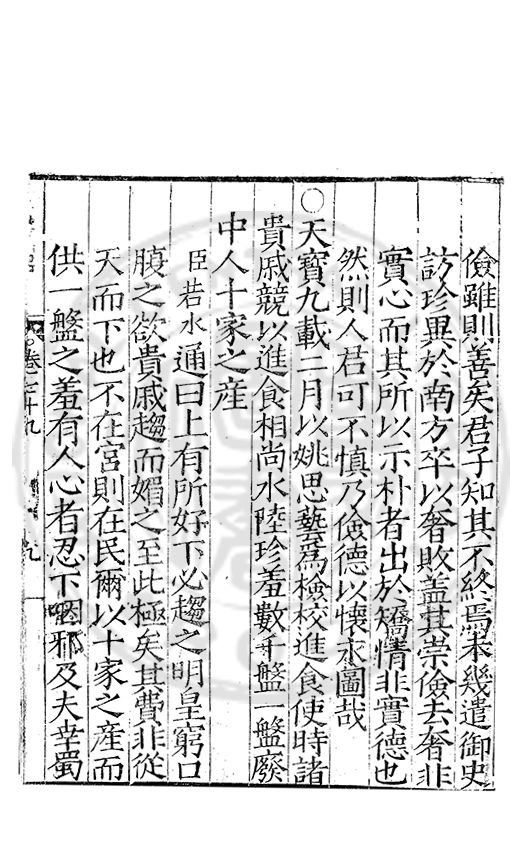 儉雖則善矣君子知其不終焉未幾遣御史
訪珍異於南方卒以奢敗蓋其崇儉去奢非
實心而其所以示朴者出於矯情非實德也
然則人君可不慎乃儉德以懷永圖哉
○天寶九載二月以姚思藝爲檢校進食使時諸
貴戚競以進食相尚水陸珍羞數千盤一盤廢
中人十家之産
臣若水通曰上有所好下必趨之明皇窮口
腹之欲貴戚趨而媚之至此極矣其費非從
天而下也不在宮則在民爾以十家之産而
供一盤之羞有人心者忍下咽邪及夫幸蜀
卷七十九
九